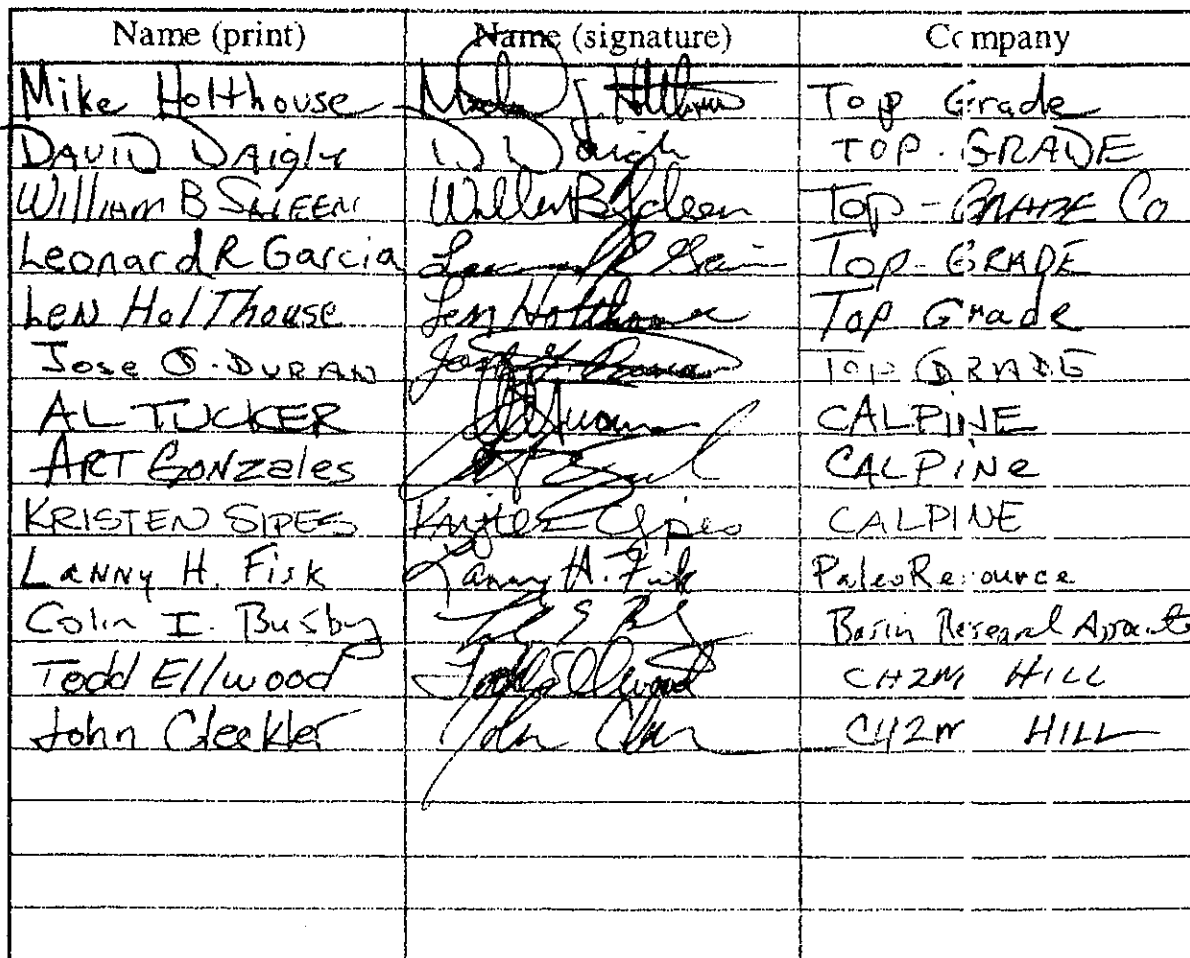 Name (print) Name (signature) Company
Mike Holthouse Top Grade
DAVID DAigly D Daigh TOP-GRADE
William B SKEEN Top-GRADE Co
Leonard R Garcia Top-GRADE
Len HolThouse Len Holthouse Top Grade
Jose O. DURAN TOP GRADE
AL TUCKER CALPINE
ART GONZales CALPINe
KRISTEN SIPES Kristen Sipes CALPINE
LaNNy H. Fisk Lanny H. Fisk PaleoResource
Colin I. Busby Basin Research Associates
Todd Ellwood Todd Ellwood CH2M HILL
John Cleckler John CH2M HILL